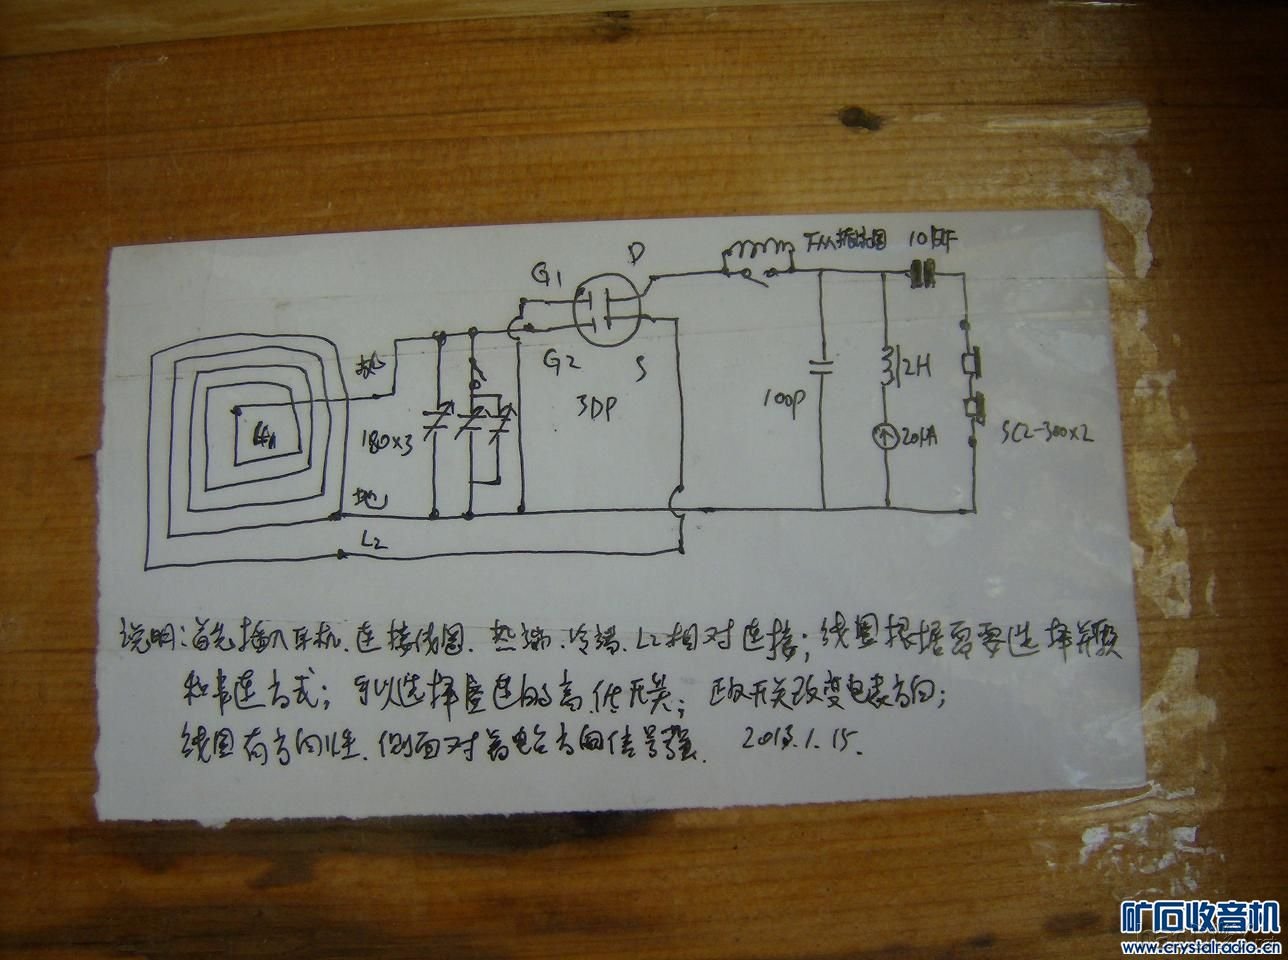 D
G1
10
热
G2
S
3DP
180×3
100P
2H
20μA
SC2-300×2
地
L2
说明:首先插入耳机.连接线圈.热端.冷端.L2相对连接;线圈根据需要选择并联
和串连方式;可以选择串连的高低开关;正反开关改变电表方向;
线圈有方向性.侧面对着电台方向信号强. 2013.1.15.
矿石收音机
www.crystalradio.cn